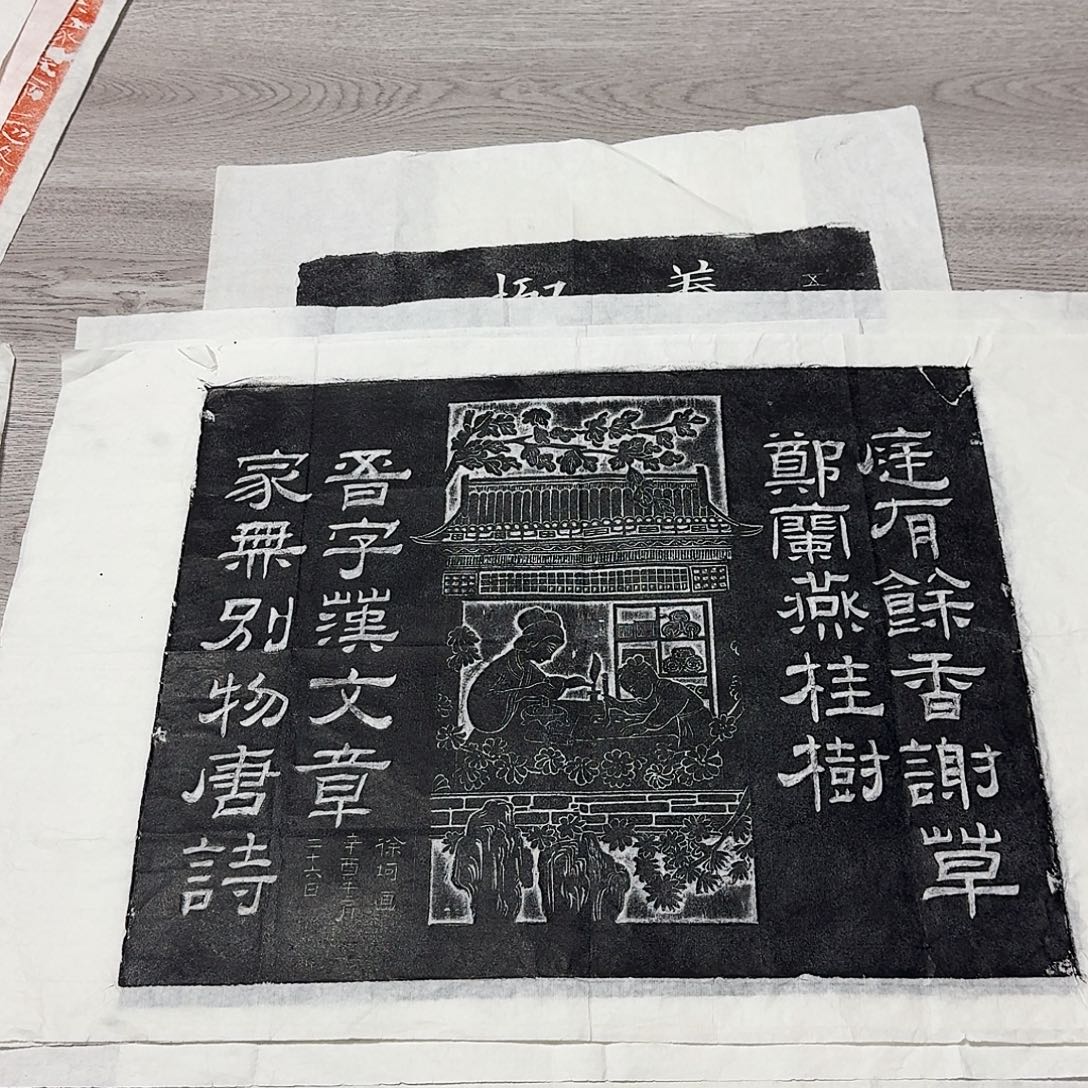 庭有餘香謝草
鄭蘭燕桂樹
家無別物唐詩
晉字漢文章
徐坷画
辛酉年
二十六日